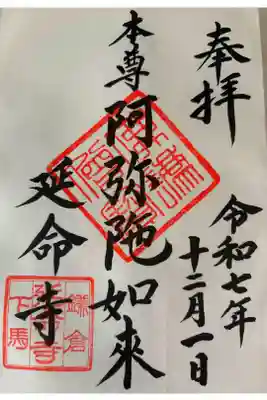 奉拝
令和七年
十二月一日
本尊
阿弥陀如來
延命寺
鎌倉
延命寺
下馬